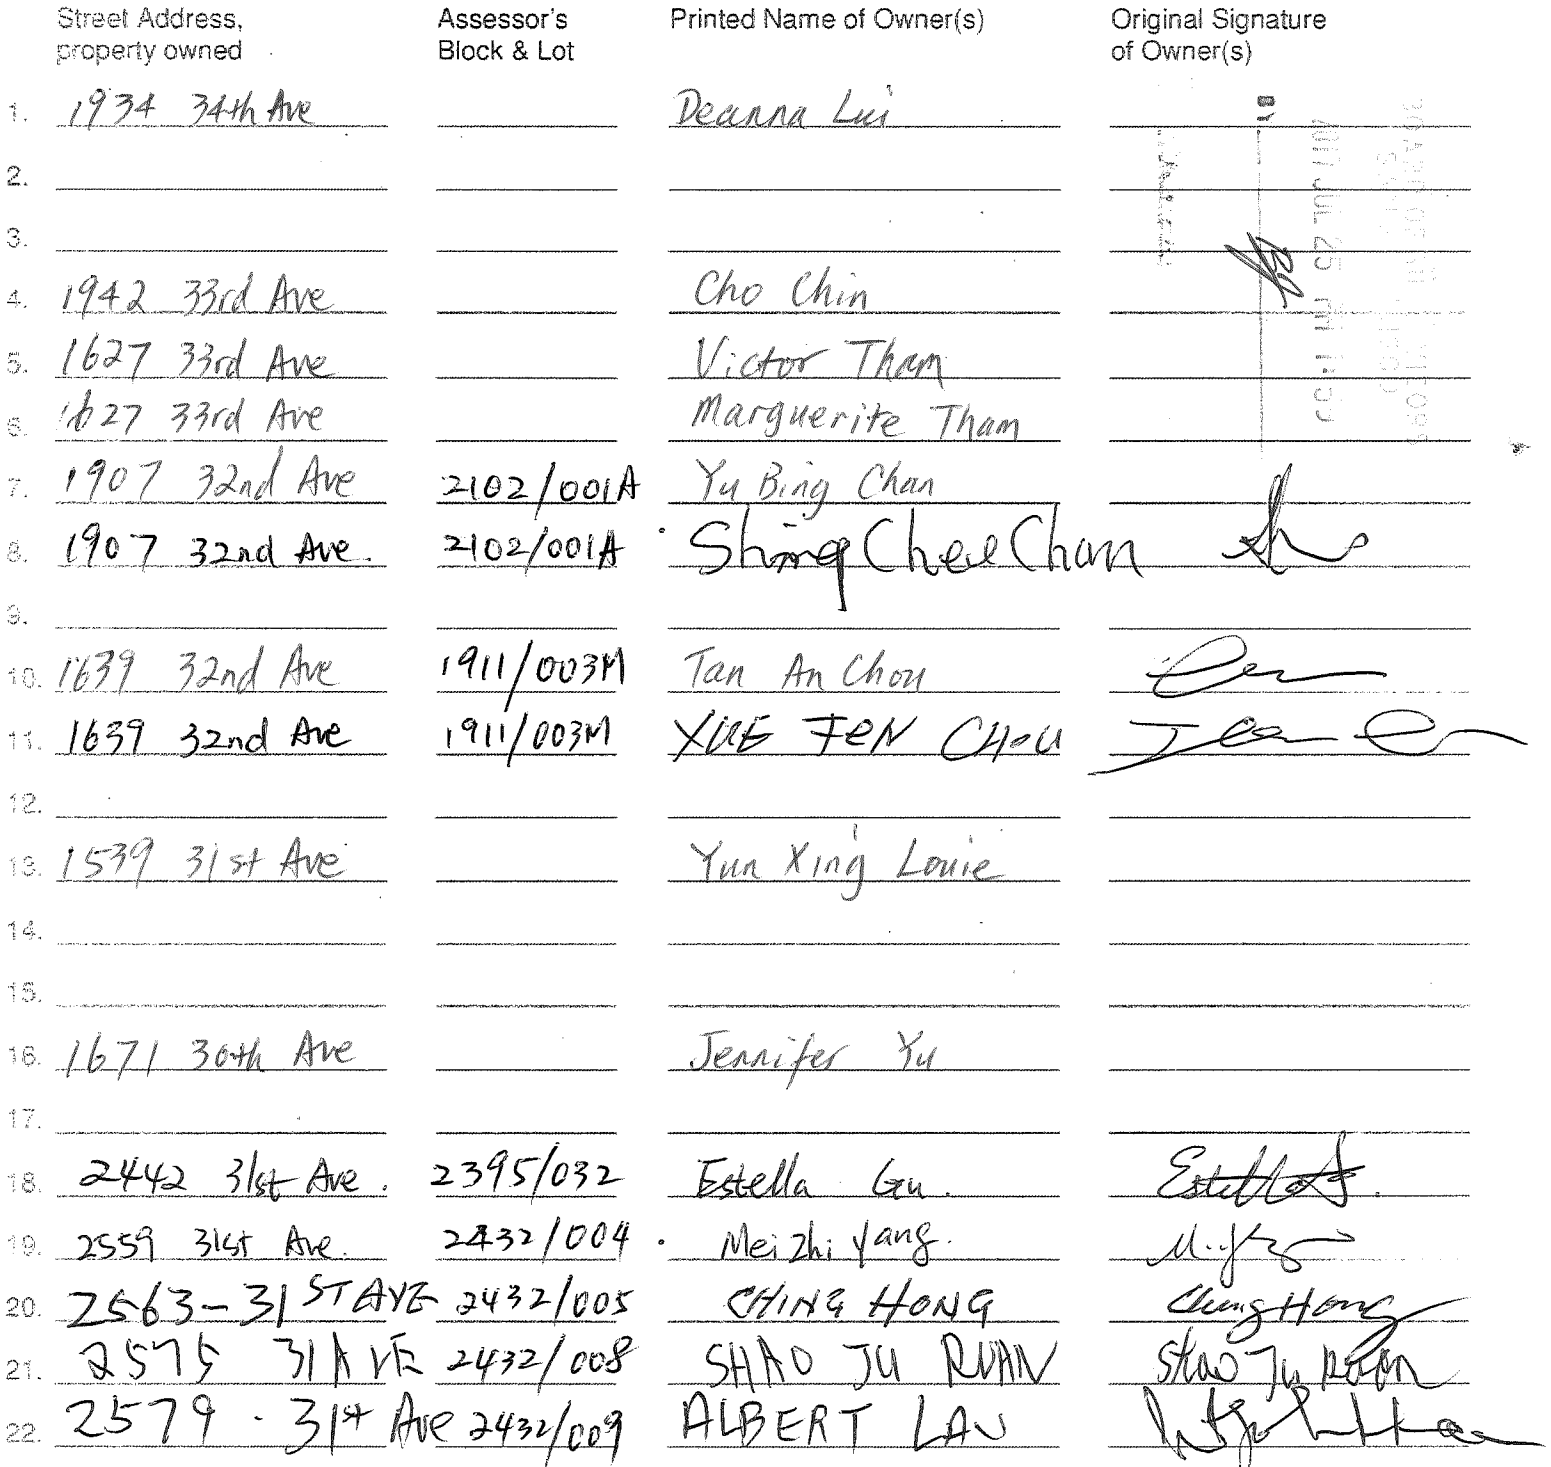 Street Address, Assessor's Printed Name of Owner(s) Original Signature
property owned Block & Lot of Owner(s)
1. 1934 34th Ave Deanna Lui
2.
3.
4. 1942 33rd Ave Cho Chin
5. 1627 33rd Ave Victor Tham
6. 1627 33rd Ave Marguerite Tham
7. 1907 32nd Ave 2102/001A Yu Bing Chan
8. 1907 32nd Ave. 2102/001A Shing Chee Chan
9.
10. 1639 32nd Ave 1911/003M Tan An Chou
11. 1639 32nd Ave 1911/003M XUE FEN CHOU
12.
13. 1539 31st Ave Yun Xing Louie
14.
15.
16. 1671 30th Ave Jennifer Yu
17.
18. 2442 31st Ave. 2395/032 Estella Gu. Estella
19. 2559 31st Ave. 2432/004 Mei Zhi Yang.
20. 2563-31ST AVE 2432/005 CHING HONG Ching Hong
21. 2575 31 AVE 2432/008 SHAO JU RUAN Shao Ju Ruan
22. 2579 - 31st Ave 2432/009 ALBERT LAU